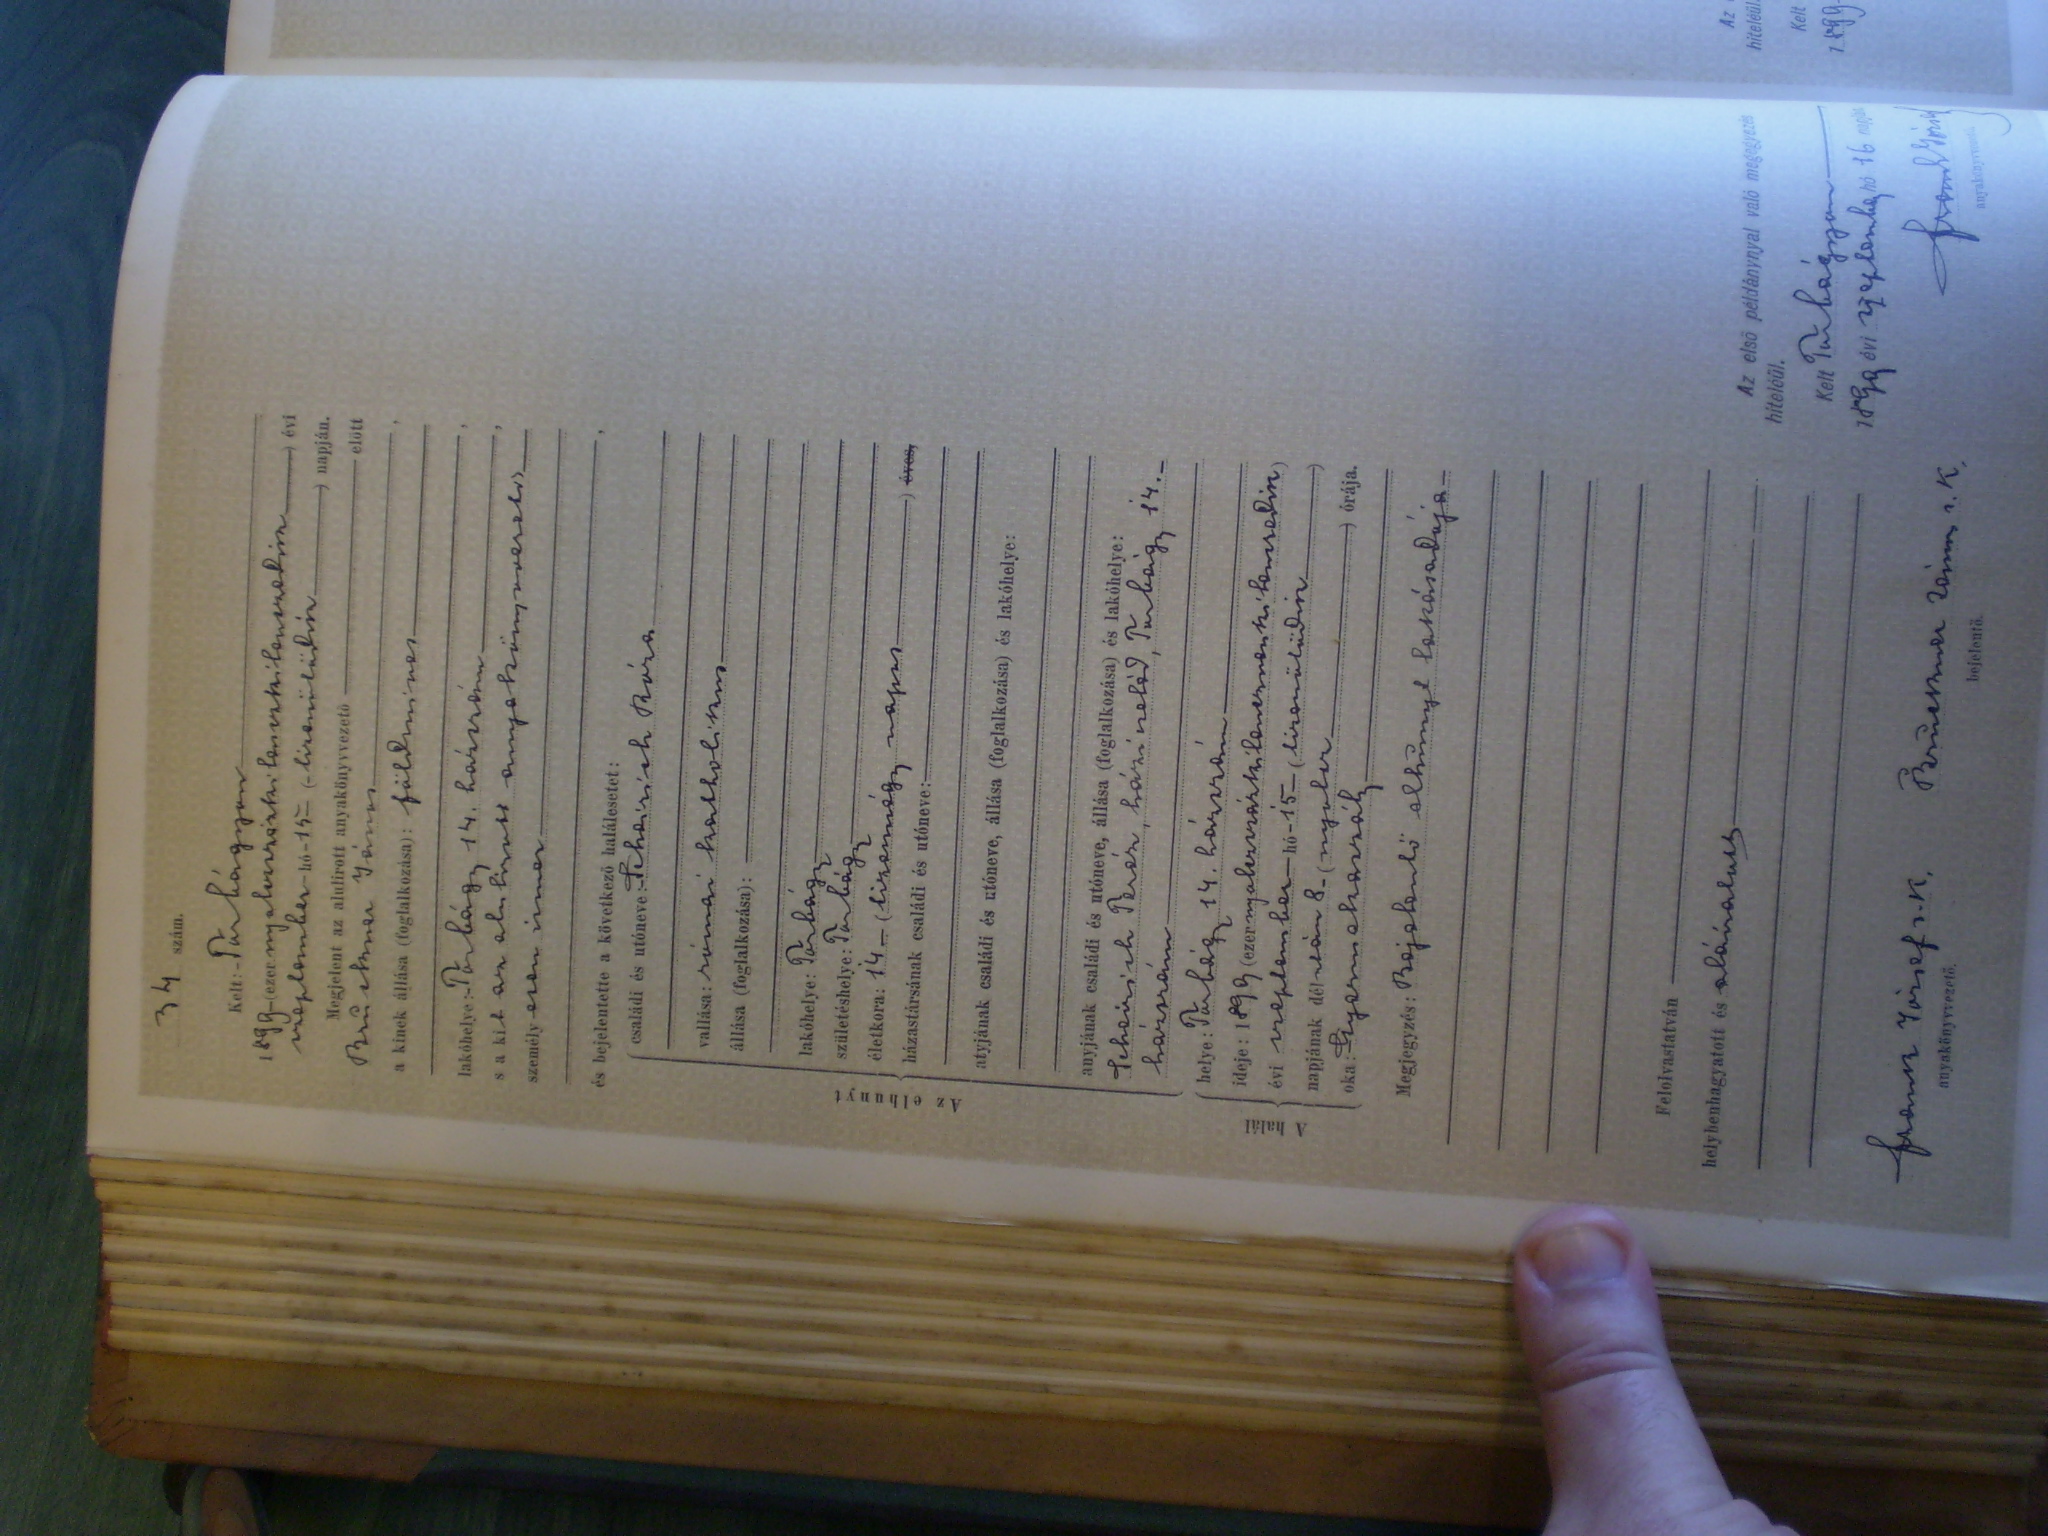 34 szám.
Kelt: Törbágyon
1899 (ezernyolcszázkilencvenkilencedik) évi
szeptember hó 15 (tizenötödik) napján.
Megjelent az alulirott anyakönyvvezető előtt
János
a kinek állása (foglalkozása): földmives,
lakóhelye: Törbágy 14. házszám,
s a kit az alulirott anyakönyvvezető
személyesen ismer
és bejelentette a következő halálesetet:
Az elhunyt
családi és utóneve: Scheirich Róza
vallása: római katholikus
állása (foglalkozása):
lakóhelye: Törbágy
születéshelye: Törbágy
életkora: 14 (tizennégy napos) éves,
házastársának családi és utóneve:
atyjának családi és utóneve, állása (foglalkozása) és lakóhelye:
anyjának családi és utóneve, állása (foglalkozása) és lakóhelye:
Scheirich Teréz, házi cseléd, Törbágy 14.
házszám
A halál
helye: Törbágy 14. házszám
ideje: 1899 (ezernyolcszázkilencvenkilencedik)
évi szeptember hó 15 (tizenötödik)
napjának délután 8 (nyolcz) órája.
oka: Gyermekaszály
Megjegyzés: Bejelentő elhunyt lakásadója
Felolvastatván
helybenhagyatott és aláiratott
József s. K.
anyakönyvvezető.
János s. K.
bejelentő.
Az első példánynyal való megegyezés
hiteléül.
Kelt Törbágyon
1899 évi szeptember hó 16 napján
anyakönyvvezető.
hiteléül.
Kelt
1899